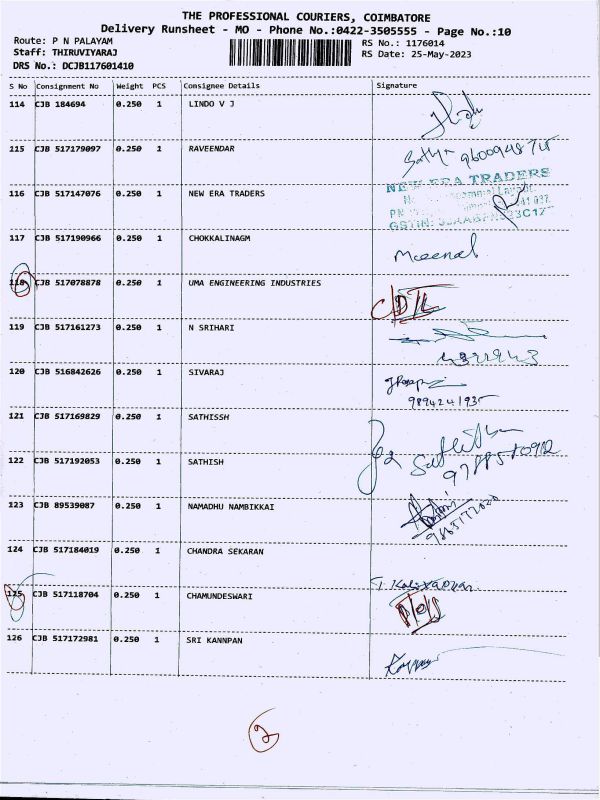 THE PROFESSIONAL COURIERS, COIMBATORE
Delivery Runsheet - MO - Phone No.:0422-3505555 - Page No.:10
Route: P N PALAYAM RS No.: 1176014
Staff: THIRUVIYARAJ RS Date: 25-May-2023
DRS No.: DCJB117601410
S No Consignment No Weight PCS Consignee Details Signature
114 CJB 184694 0.250 1 LINDO V J
115 CJB 517179097 0.250 1 RAVEENDAR
NEW ERA TRADERS
116 CJB 517147076 0.250 1 NEW ERA TRADERS
117 CJB 517190966 0.250 1 CHOKKALINAGM Meenal
118 CJB 517078878 0.250 1 UMA ENGINEERING INDUSTRIES
119 CJB 517161273 0.250 1 N SRIHARI
120 CJB 516842626 0.250 1 SIVARAJ
9894241935
121 CJB 517169829 0.250 1 SATHISSH
122 CJB 517192053 0.250 1 SATHISH
123 CJB 89539087 0.250 1 NAMADHU NAMBIKKAI
124 CJB 517184019 0.250 1 CHANDRA SEKARAN
125 CJB 517118704 0.250 1 CHAMUNDESWARI
126 CJB 517172981 0.250 1 SRI KANNPAN
2